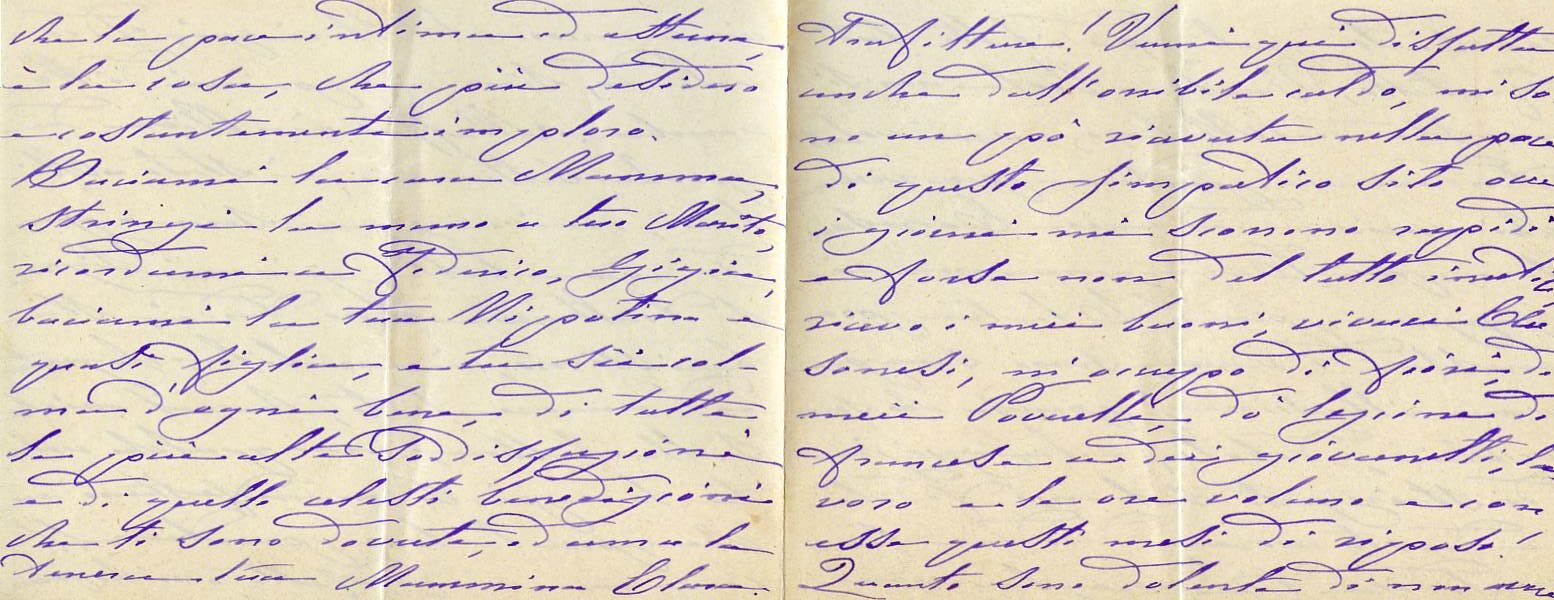 che la pace intima ed eterna,
è la cosa, che più desidero
e costantemente imploro.
Baciami la cara Mamma,
stringi la mano a tuo Marito,
ricordami a Federico, Gigia,
baciami la tua Nipotina e
quasi figlia, e tu sii col-
ma d'ogni bene, di tutte
le più alte soddisfazioni
e di quelle celesti benedizioni
che ti sono dovute, ed ama la
tenera tua Mammina Clara.
trafitture! Venni qui disfatta
anche dall'orribile caldo, mi so
no un pò riavuta nella pace
di questo simpatico sito ove
i giorni mi scorrono rapidi
e forse non del tutto inutili,
ricevo i miei buoni, vivaci Clu
sonesi, m'occupo di fiori, dei
miei Poverelli, dò lezione di
francese a dei giovanetti, la
voro e le ore volano e con
esse questi mesi di riposo!
Quanto sono dolente di non aver